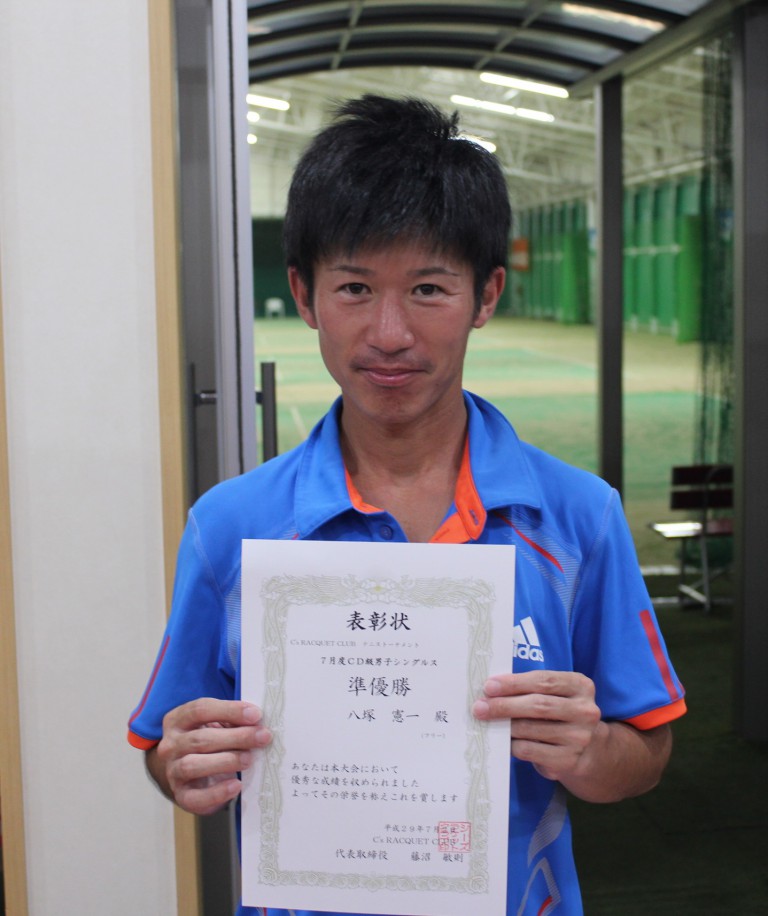 adidas
表彰状
C's RACQUET CLUB テニストーナメント
7月度CD級男子シングルス
準優勝
八塚 憲一 殿
(フリー)
あなたは本大会において
優秀な成績を収められました
よってその栄誉を称えこれを賞します
平成29年7月
C's RACQUET CLUB
代表取締役 藤沼 敏則